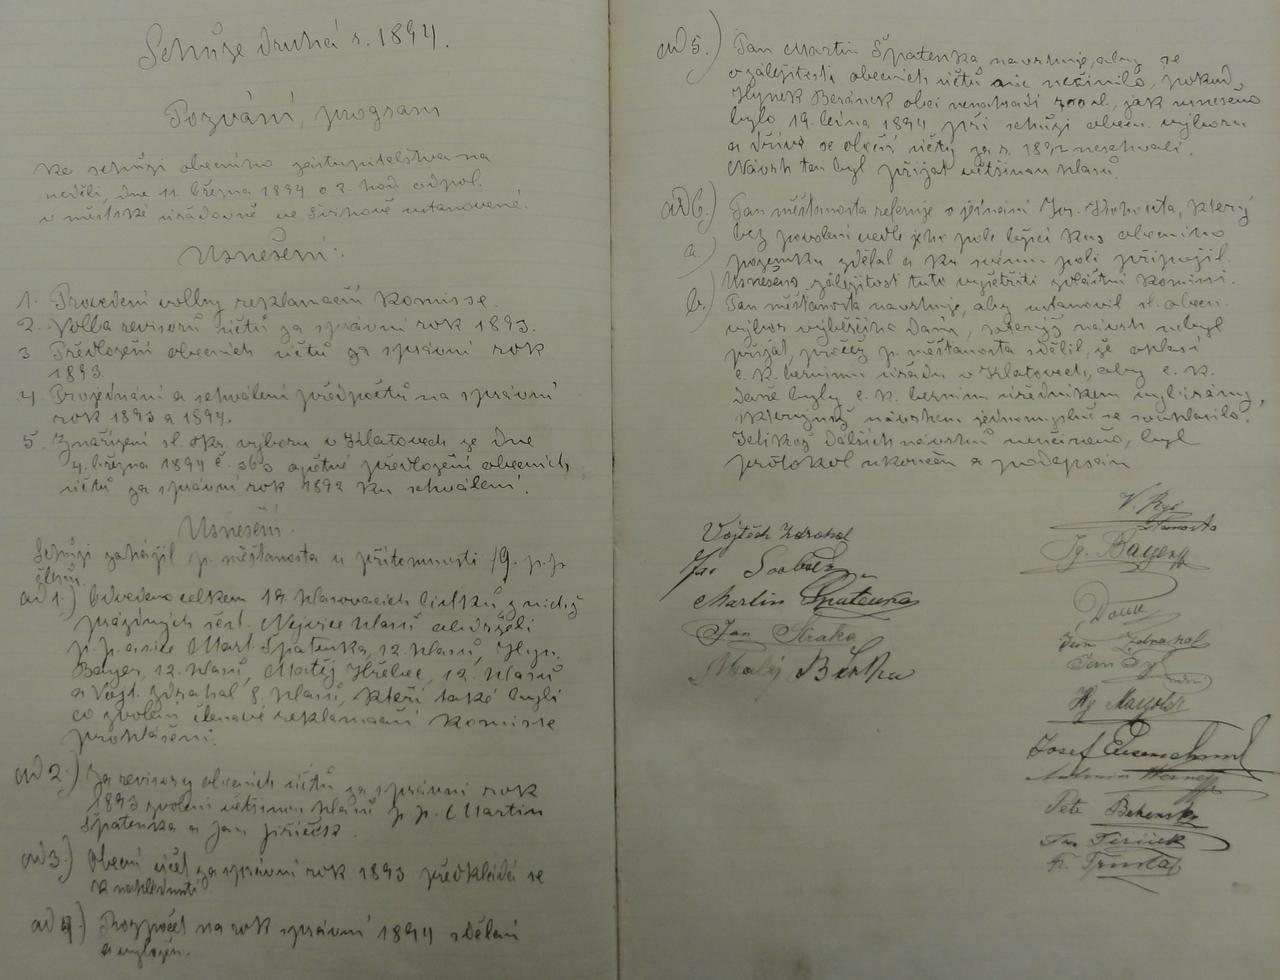 Schůze druhá r. 1894.
Pozvání, program
ke schůzi obecního zastupitelstva na
neděli, dne 11. března 1894 o 2. hod. odpol.
v městské úřadovně ve Strážově ustanovené.
Usnešení:
1. Provedení volby reklamační komisse.
2. Volba revisorů účtů za správní rok 1893.
3 Předložení obecních účtů za správní rok
1893.
4. Projednání a schválení předpočtů na správní
rok 1893 a 1894.
5. Znařízení sl. okr. výboru v Klatovech ze dne
4. března 1894 č. 363 opětné předložení obecních
účtů za správní rok 1892 ku schválení.
Usnešení.
Schůzi zahájil p. měšťanosta u přítomnosti 19. p.p.
členů.
ad 1.) Odvedeno celkem 18 hlasovacích lístků z nichž
prázdných šest. Nejvíce hlasů obdrželi
p.p. a sice Mart. Špatenka, 12 hlasů, Hyn.
Bayer, 12. hlasů, Matěj Hřebec, 12. hlasů
a Vojt. Zdrahal 8. hlasů, kteří také byli
co zvolení členové reklamační komisse
prohlášeni.
ad 2.) Za revisory obecních účtů za správní rok
1893 zvoleni většinou hlasů p. p. Martin
Špatenka a Jan Jiřiček.
ad 3.) Obecní účet za správní rok 1893 předkládá se
k nahlédnutí
ad 4.) Rozpočet na rok správní 1894 sdělán
a vyložen.
ad 5.) Pan Martin Špatenka navrhuje, aby se
v záležitosti obecních účtů nic nečinilo, pokud
Hynek Beránek obci nenahradí 700 zl., jak usneseno
bylo 19. ledna 1894 při schůzi obecn. výboru
a dříve se obecní účty za r. 1892 neschválí.
Návrh ten byl přijat většinou hlasů.
ad 6.) Pan měšťanosta referuje o jednání Jos. Kohouta, který
a.) bez povolení vedle jeho pole ležící kus obecního
pozemku zdělal a ku svému poli připojil.
Usnešeno záležitost tuto vyšetřiti zvláštní komisí.
b.) Pan měšťanosta navrhuje, aby ustanovil sl. obecn.
výbor výběrčího daní, kterýž návrh nebyl
přijat, pročež p. měšťanosta sdělil, že ohlásí
c. k. bernímu úřadu v Klatovech, aby c. k.
daně byly c. k. berním úředníkem vybírány,
s kterýmž návrhem jednomyslně se souhlasilo.
Jelikož dalších návrhů neučiněno, byl
protokol ukončen a podepsán
V. Ryš
starosta
Vojtěch Zdrahal
Ig. Bayer
Jos Svoboda
Martin Špatenka
Jan Straka
Jan Zdrahal
Matěj Běrka
Hy Mayold
Josef Eisenschiml
Antonín
Petr Behensky
Jan Jiřiček
Fr.